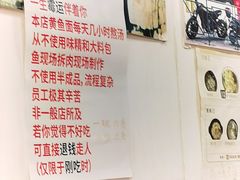 一生霉运伴着你
本店黄鱼面每天几小时熬汤
从不使用味精和大料包
鱼现场拆肉现场制作
不使用半成品,流程复杂
员工极其辛苦
非一般店所及
若你觉得不好吃
可直接退钱走人
(仅限于刚吃时)